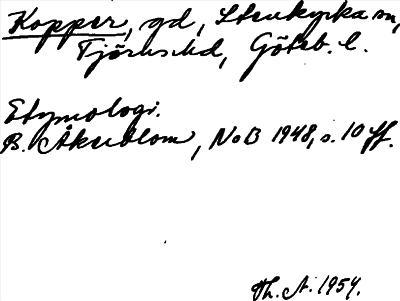 Kopper, gd, Stenkyrka sn,
Tjörns hd, Göteb. l.
Etymologi.
B. Åkerblom, NoB 1948, s. 10 ff.
Th. A. 1954.